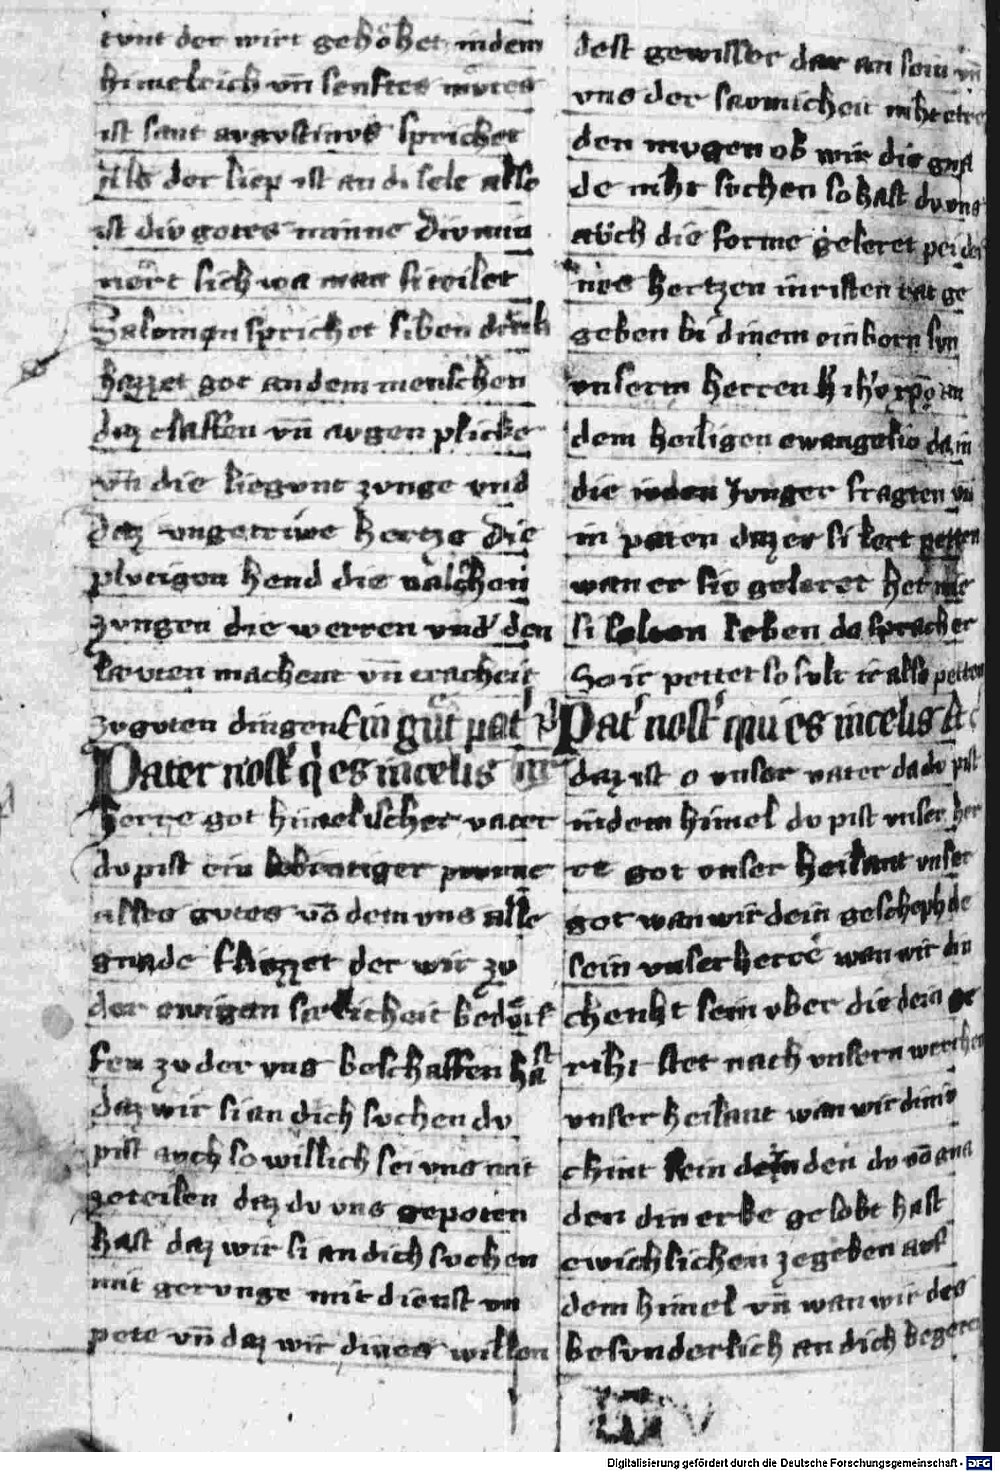 tvnt der wirt gehöhet indem
himelrich vn̄ senftes mv̊tes
ist sant avgvstinvs sprichet
Als der liep ist an di sele also
ist div gotes minne Div min
nert sich wa man si teilet
Salomon sprichet siben dinch
hazzet got an dem menschen
daz chlaffen vn̄ avgen plicke
vn̄ die liegvnt zvnge vnd
daz vngetriwe hertze Die
plvtigen hend die valschen
zvngen die werren vnd' den
levten machent vn̄ tracheit
zv guten dingen Ein gůt pat'
Pater nost' q̇ es in celis
herre got himelischer vater
dv pist ein lebentiger prvnne
alles gvtes vō dem vns alle
gnade flivzzet der wir zv
der ewigen selicheit bedvrf
fen zv der vns beschaffen hast
daz wir si an dich svchen dv
pist avch so willich sei vns mit
zeteilen daz dv vns gepoten
hast daz wir si an dich svchen
mit gervnge mit dienst vn
pete vn̄ daz wir dines willen
dest gewisser dar an sein vn̄
vns der savmicheit niht
den mvgen ob wir die gna
de niht svchen so hast dv vns
avch die forme geleret pei dei
nes hertzen rat ge
geben bi dinem einborn svn
vnserm herren an
dem heiligen ewangelio da in
die Jvnger fragten vn̄
in paten daz er si lert petten
wan er sie geleret het wie
si solten leben do sprach er
So ir pettet so svlt ir also petten
Pat' nost' qui es in celis &c
daz ist o vnser vater da dv pist
in dem himel dv pist vnser her
re got vnser heilant vnser
got wan wir dein geschephde
sein vnser herre wan wir din
chenht sein vber die dein ge
riht stet nach vnsern werchen
vnser heilant wan wir dinev
chint sein den dv vō gna
den din erbe gelobt hast
ewichlichen zegeben avf
dem himel vn̄ wan wir des
besvnderlich an dich begeren
Digitalisierung gefördert durch die Deutsche Forschungsgemeinschaft - DFG